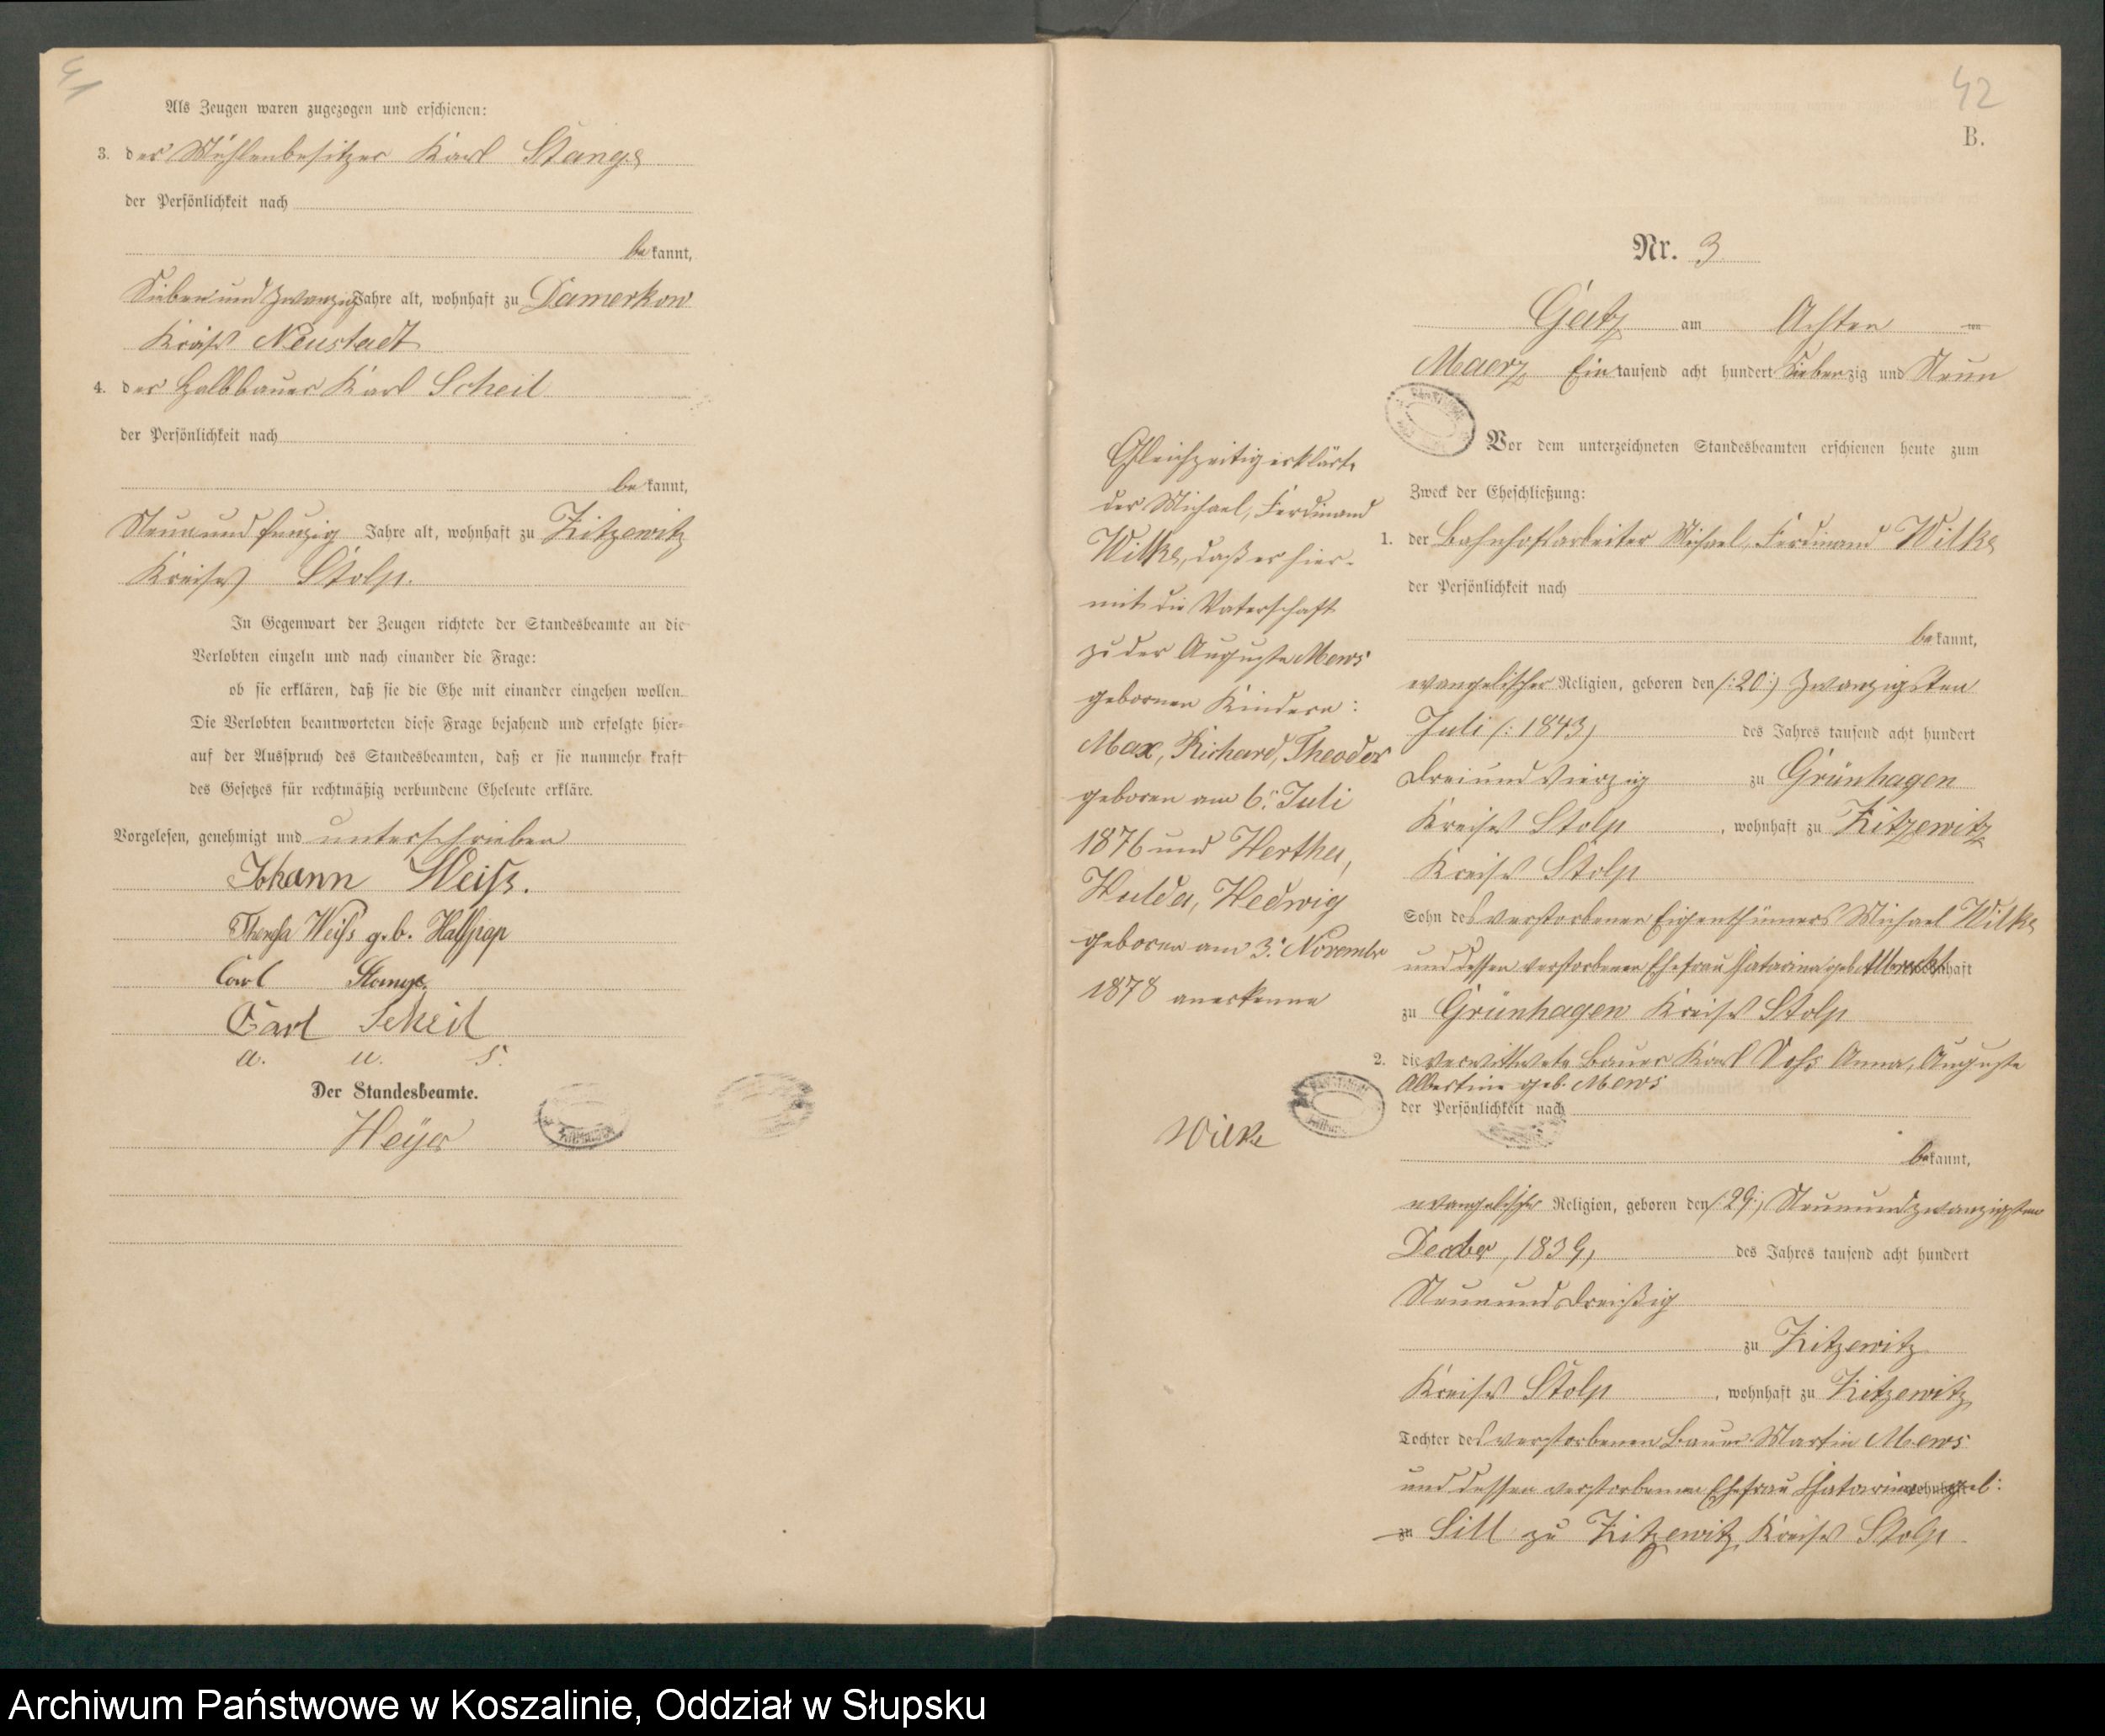 41
Als Zeugen waren zugezogen und erschienen:
3. der Mühlenbesitzer Karl Stange
der Persönlichkeit nach
be kannt,
Sieben und zwanzig Jahre alt, wohnhaft zu Damerkow
Kreis Neustadt
4. der Halbbauer Karl Scheil
der Persönlichkeit nach
be kannt,
Neun und funzig Jahre alt, wohnhaft zu Zitzewitz
Kreises Stolp.
In Gegenwart der Zeugen richtete der Standesbeamte an die
Verlobten einzeln und nach einander die Frage:
ob sie erklären, daß sie die Ehe mit einander eingehen wollen.
Die Verlobten beantworteten diese Frage bejahend und erfolgte hier-
auf der Ausspruch des Standesbeamten, daß er sie nunmehr kraft
des Gesetzes für rechtmäßig verbundene Eheleute erkläre.
Vorgelesen, genehmigt und unterschrieben
Johann Weiß.
Theresa Weiß g.b. Halfpap
Carl Stange
Carl Scheil
a. u. s.
Der Standesbeamte.
Heyer
42
B.
Nr. 3
Gatz am Achten ten
Maerz Ein tausend acht hundert Siebenzig und Neun
Vor dem unterzeichneten Standesbeamten erschienen heute zum
Zweck der Eheschließung:
1. der Bahnhofsarbeiter Michael, Ferdinand Wilke
der Persönlichkeit nach
be kannt,
evangelischer Religion, geboren den /:20:/ Zwanzigsten
Juli /: 1843/ des Jahres tausend acht hundert
Dreiundvierzig zu Grünhagen
Kreises Stolp, wohnhaft zu Zitzewitz
Kreises Stolp
Sohn des verstorbenen Eigenthümers Michael Wilke
und dessen verstorbenen Ehefrau Catarina geb Albrecht wohnhaft
zu Grünhagen Kreises Stolp
2. die verwittwete Bauer Karl Anna, Auguste
Albertine geb. Mews
der Persönlichkeit nach
bekannt,
evangelischer Religion, geboren den /:29:/ Neunundzwanzigsten
Decber, 1839, des Jahres tausend acht hundert
Neununddreißig
zu Zitzewitz
Kreises Stolp, wohnhaft zu Zitzewitz
Tochter des verstorbenen Bauer Martin Mews
und dessen verstorbenen Ehefrau Catarina wohnhaft geb:
zu Sill zu Zitzewitz Kreises Stolp
Gleichzeitig erklärte
der Michael, Ferdinand
Wilke, daß er hier-
mit die Vaterschaft
zu der Auguste Mews
gebornen Kindern:
Max, Richard, Theodor
geboren am 6. Juli
1876 und Hertha,
Hulda, Hedwig
geboren am 3. Novembr
1878 anerkenne
Wilke
Archiwum Państwowe w Koszalinie, Oddział w Słupsku